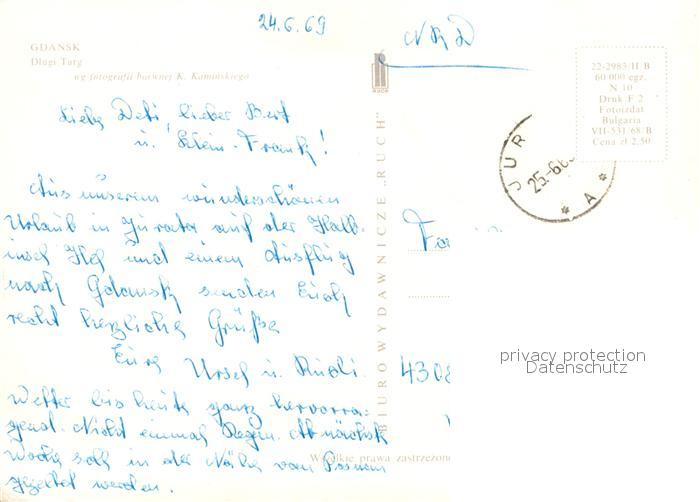 24.6.69
GDAŃSK
Długi Targ
wg fotografii barwnej K. Kamińskiego
Liebe Deti, lieber Bert
u. klein-Frank!
Aus unserem wunderschönen
Urlaub in Jurata auf der Halb-
insel Hel und einem Ausflug
nach Gdansk senden Euch
recht herzliche Grüße
Eure Ursel u. Rudi.
Wetter bis heute ganz hervorra-
gend. Nicht einmal Regen. Ab nächste
Woche soll in der Nähe von Posnan
gezeltet werden.
BIURO WYDAWNICZE „RUCH”
NRD
22-2983/II B
60 000 egz.
N 10
Druk F 2
Fotoizdat
Bulgaria
VII-531/68/B
Cena zł 2,50
JUR
25-6.6
* A *
Fa
4308
privacy protection
Datenschutz
Wszelkie prawa zastrzeżone